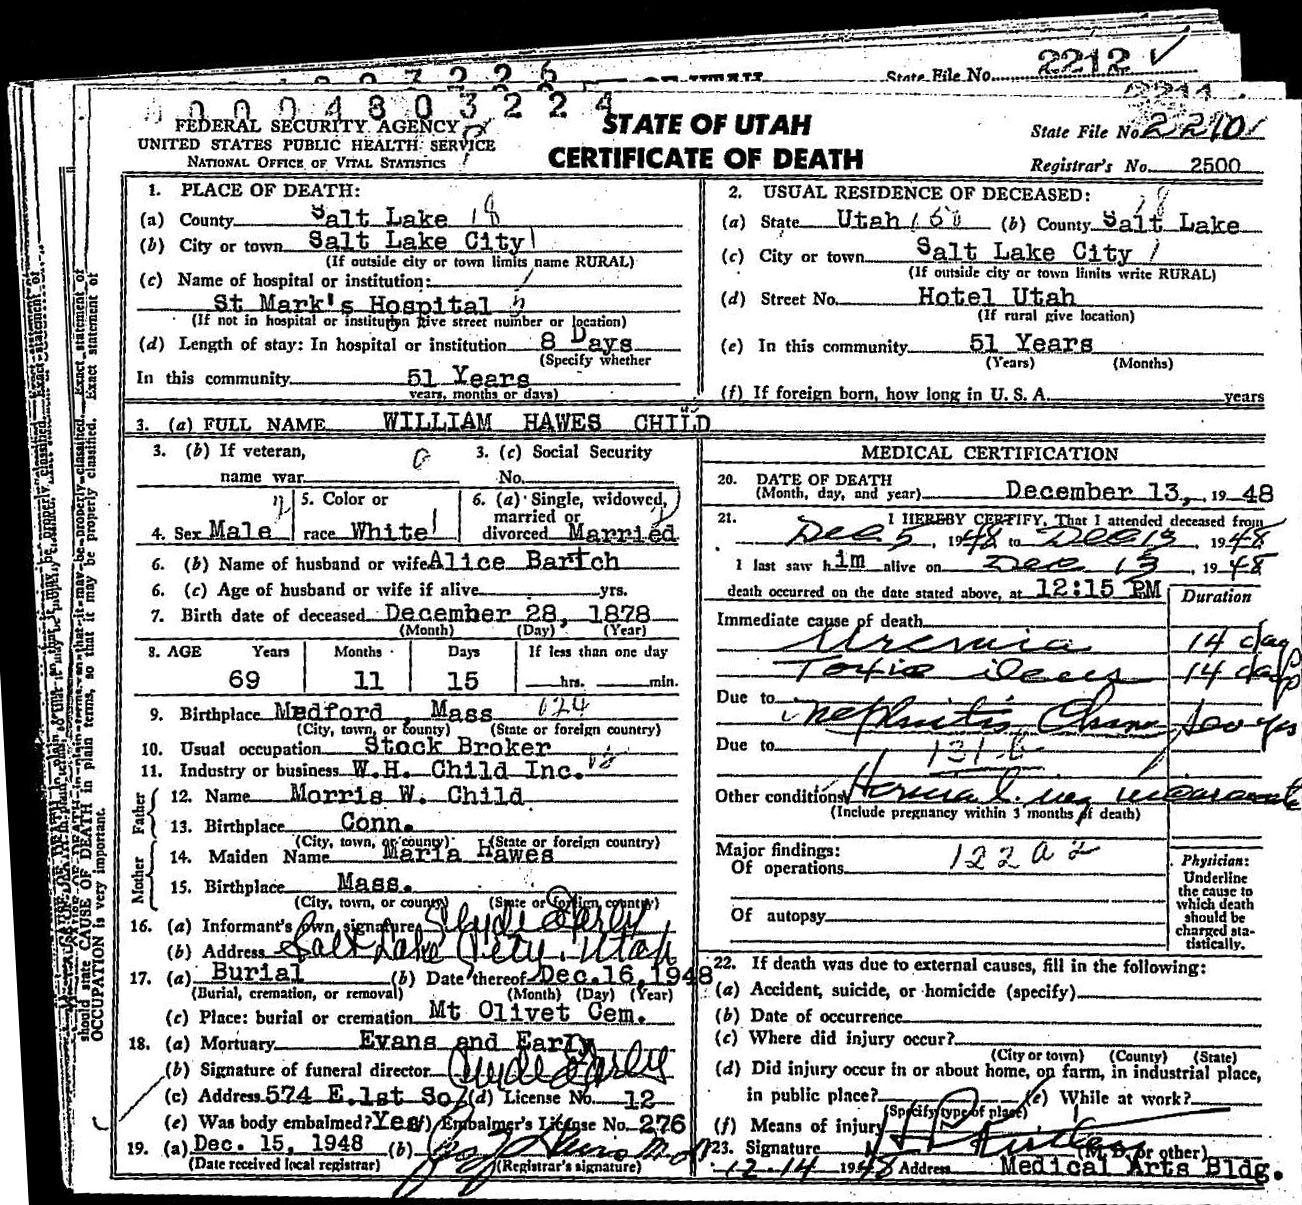 State File No. 2212 ✓
2211
0 0 0 4 8 0 3 2 2 4
FEDERAL SECURITY AGENCY
UNITED STATES PUBLIC HEALTH SERVICE
NATIONAL OFFICE OF VITAL STATISTICS
STATE OF UTAH
CERTIFICATE OF DEATH
State File No. 2210
Registrar's No. 2500
1. PLACE OF DEATH:
(a) County Salt Lake 18
(b) City or town Salt Lake City 1
(If outside city or town limits name RURAL)
(c) Name of hospital or institution:
St Mark's Hospital
(If not in hospital or institution give street number or location)
(d) Length of stay: In hospital or institution 8 Days
(Specify whether
In this community 51 Years
years, months or days)
2. USUAL RESIDENCE OF DECEASED:
(a) State Utah 160 (b) County Salt Lake 18
(c) City or town Salt Lake City 1
(If outside city or town limits write RURAL)
(d) Street No. Hotel Utah
(If rural give location)
(e) In this community 51 Years
(Years) (Months)
(f) If foreign born, how long in U. S. A. years
3. (a) FULL NAME WILLIAM HAWES CHILD
3. (b) If veteran, 0 3. (c) Social Security
name war No.
4. Sex Male 5. Color or race White 6. (a) Single, widowed, married or divorced Married
6. (b) Name of husband or wife Alice Bartch
6. (c) Age of husband or wife if alive yrs.
7. Birth date of deceased December 28, 1878
(Month) (Day) (Year)
8. AGE Years Months Days If less than one day
69 11 15 hrs. min.
9. Birthplace Medford, Mass 124
(City, town, or county) (State or foreign country)
10. Usual occupation Stock Broker
11. Industry or business W.H. Child Inc.
Father
12. Name Morris W. Child
13. Birthplace Conn.
(City, town, or county) (State or foreign country)
Mother
14. Maiden Name Maria Hawes
15. Birthplace Mass.
(City, town, or county) (State or foreign country)
16. (a) Informant's own signature Clyde Early
(b) Address Salt Lake City, Utah
17. (a) Burial (b) Date thereof Dec. 16, 1948
(Burial, cremation, or removal) (Month) (Day) (Year)
(c) Place: burial or cremation Mt Olivet Cem.
18. (a) Mortuary Evans and Early
(b) Signature of funeral director Clyde Early
(c) Address 574 E. 1st So. (d) License No. 12
(e) Was body embalmed? Yes (f) Embalmer's License No. 276
19. (a) Dec. 15, 1948 (b)
(Date received local registrar) (Registrar's signature)
MEDICAL CERTIFICATION
20. DATE OF DEATH
(Month, day, and year) December 13, 1948
21. I HEREBY CERTIFY, That I attended deceased from
Dec 5, 1948 to Dec 13, 1948
I last saw him alive on Dec 13, 1948
death occurred on the date stated above, at 12:15 PM
Duration
Immediate cause of death
Uremia 14 days
Toxic ileus 14 days
Due to Nephritis Chron
Due to 131-b
Other conditions Hernia
(Include pregnancy within 3 months of death)
Major findings:
Of operations 122 a 2
Of autopsy
Physician:
Underline
the cause to
which death
should be
charged sta-
tistically.
22. If death was due to external causes, fill in the following:
(a) Accident, suicide, or homicide (specify)
(b) Date of occurrence
(c) Where did injury occur?
(City or town) (County) (State)
(d) Did injury occur in or about home, on farm, in industrial place,
in public place? (e) While at work?
(Specify type of place)
(f) Means of injury
23. Signature
(M. D. or other)
12-14 1948 Address Medical Arts Bldg.
should state CAUSE OF DEATH in plain terms, so that it may be properly classified. Exact statement of
OCCUPATION is very important.